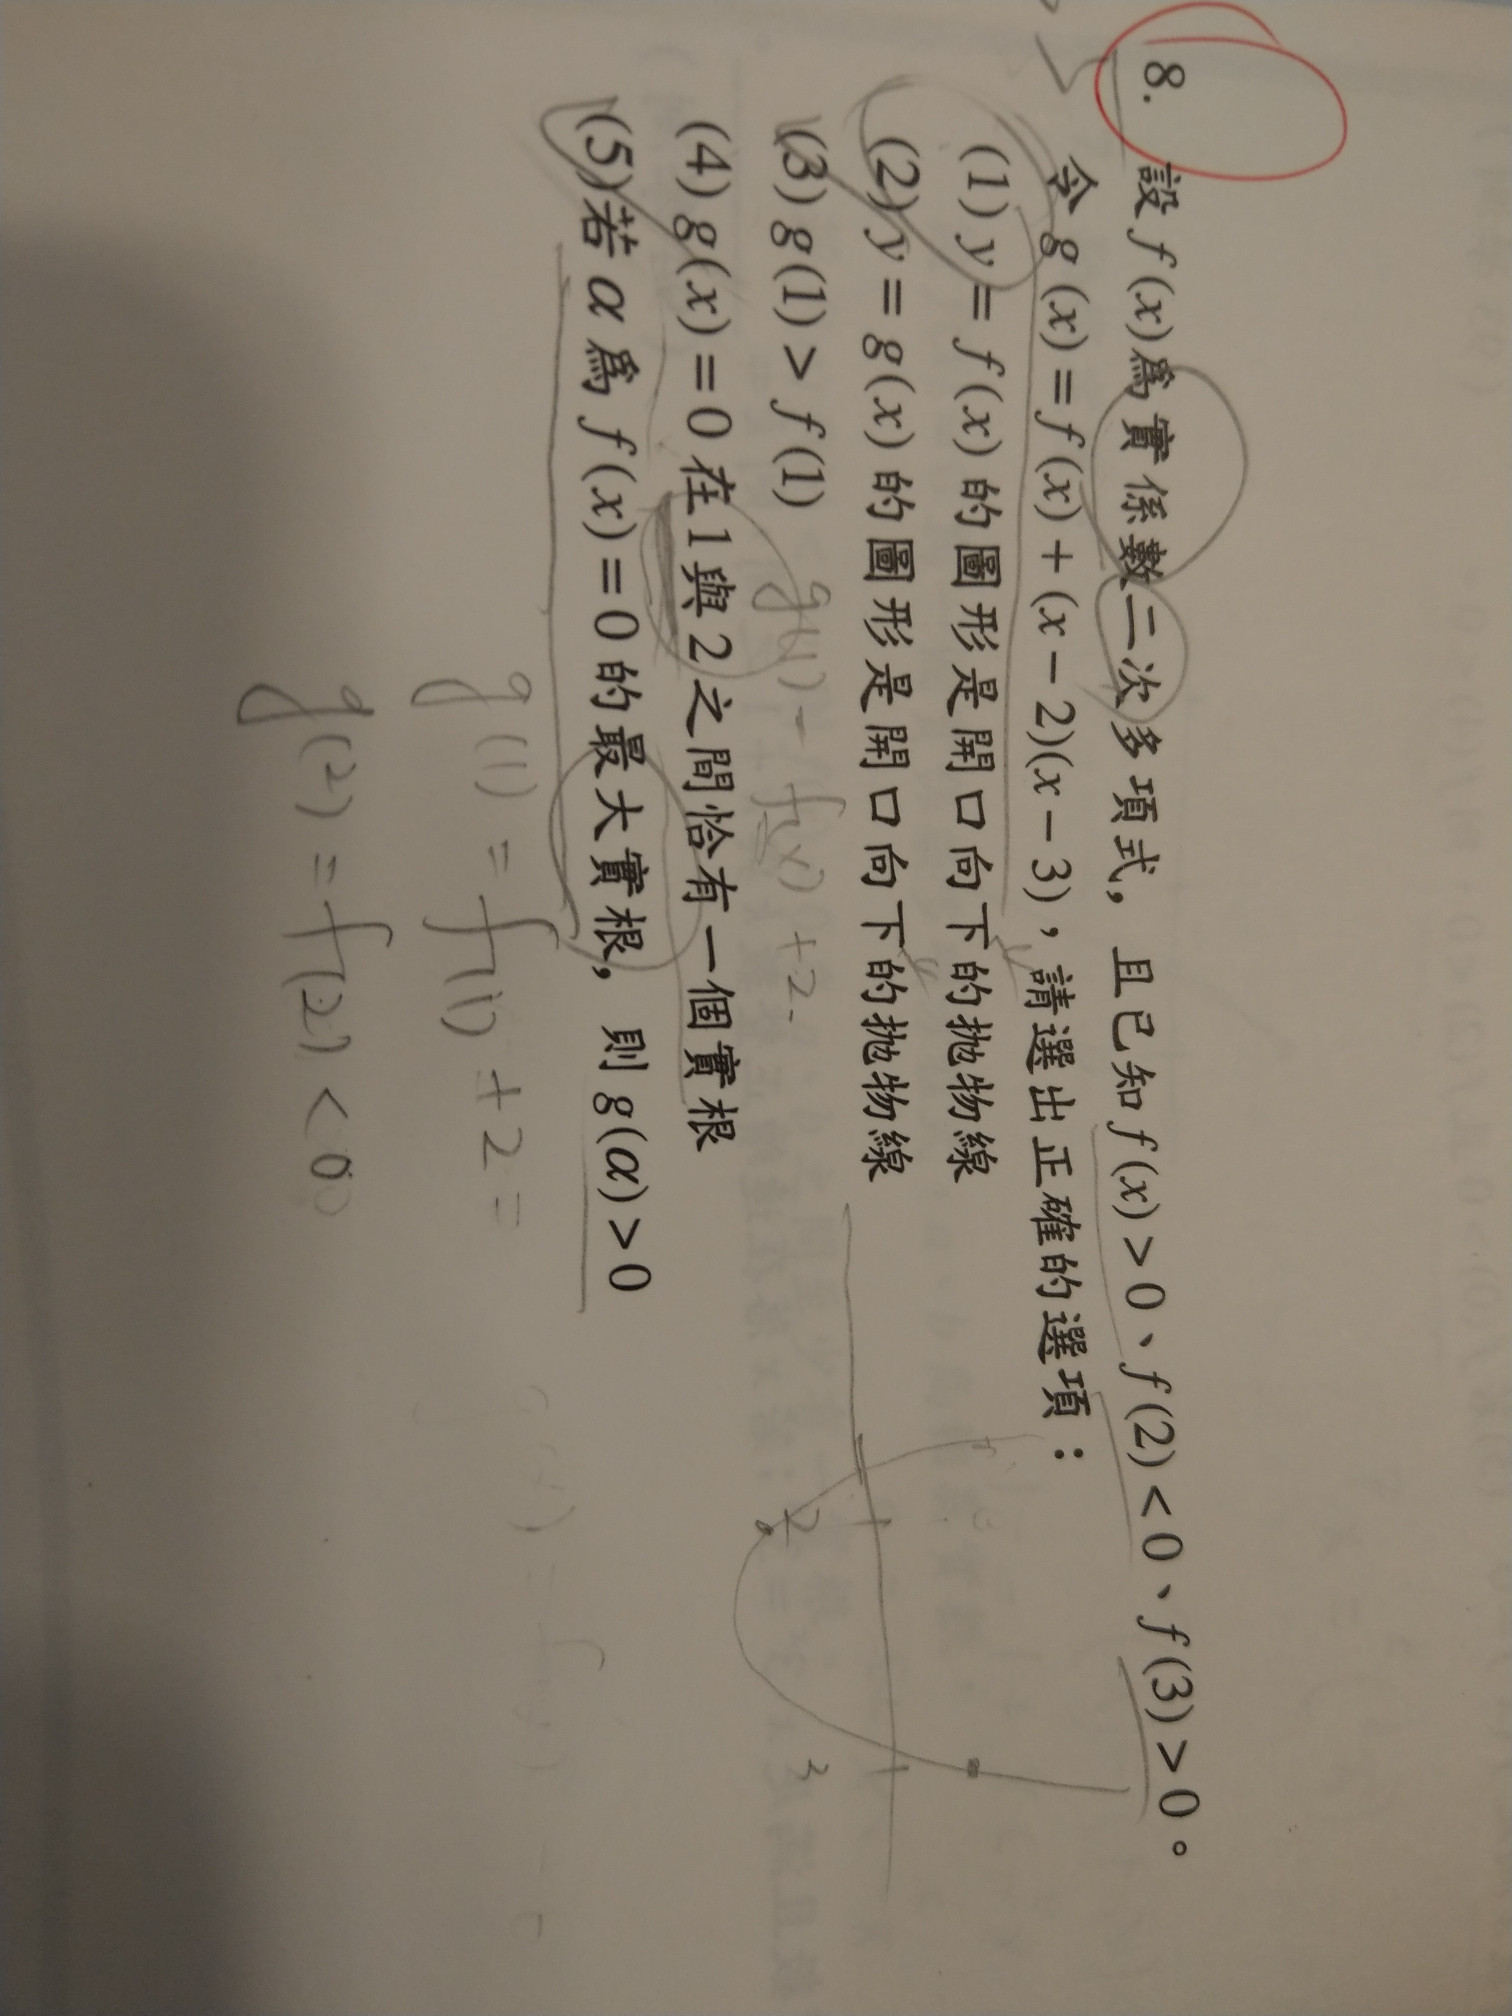 8. 設 f(x)為實係數二次多項式，且已知 f(x)>0、f(2)<0、f(3)>0。
令 g(x)=f(x)+(x-2)(x-3)，請選出正確的選項：
(1) y=f(x)的圖形是開口向下的拋物線
(2) y=g(x)的圖形是開口向下的拋物線
(3) g(1)>f(1)
g(1)-f(x)+2
(4) g(x)=0在1與2之間恰有一個實根
(5)若α為 f(x)=0的最大實根，則 g(α)>0
2
3
g(1)=f(1)+2=
g(2)=f(2)<0